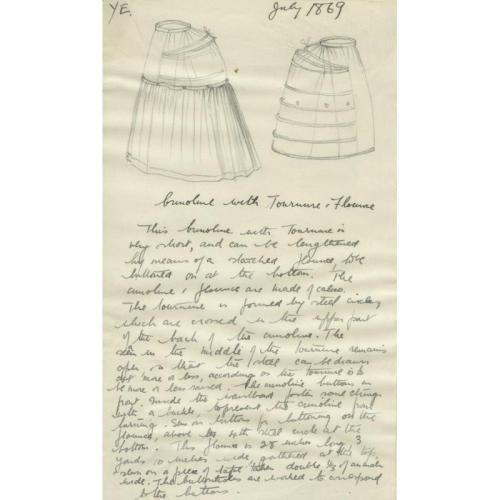 YE.
July 1869
Crinoline with Tournure & Flounce
This crinoline with Tournure is
very short, and can be lengthened
by means of a starched flounce, to be
buttoned on at the bottom. The
crinoline & flounce are made of calico.
The tournure is formed by steel circles
which are crossed in the upper part
of the back of the crinoline. The
slit in the middle of the tournure remains
open, so that the steel can be drawn
out more or less, according as the tournure is to
be more or less raised. The crinoline buttons in
front. Inside the waistband fasten some strings
with a buckle, to prevent the crinoline from
turning. Sew on buttons for buttoning on the
flounce, above the 4th steel circle at the
bottom. This flounce is 28 inches long, 3
yards 10 inches wide, gathered at the top,
& sewn on a piece of tape taken double, ½ of an inch
wide. The buttonholes are worked to correspond
to the buttons.